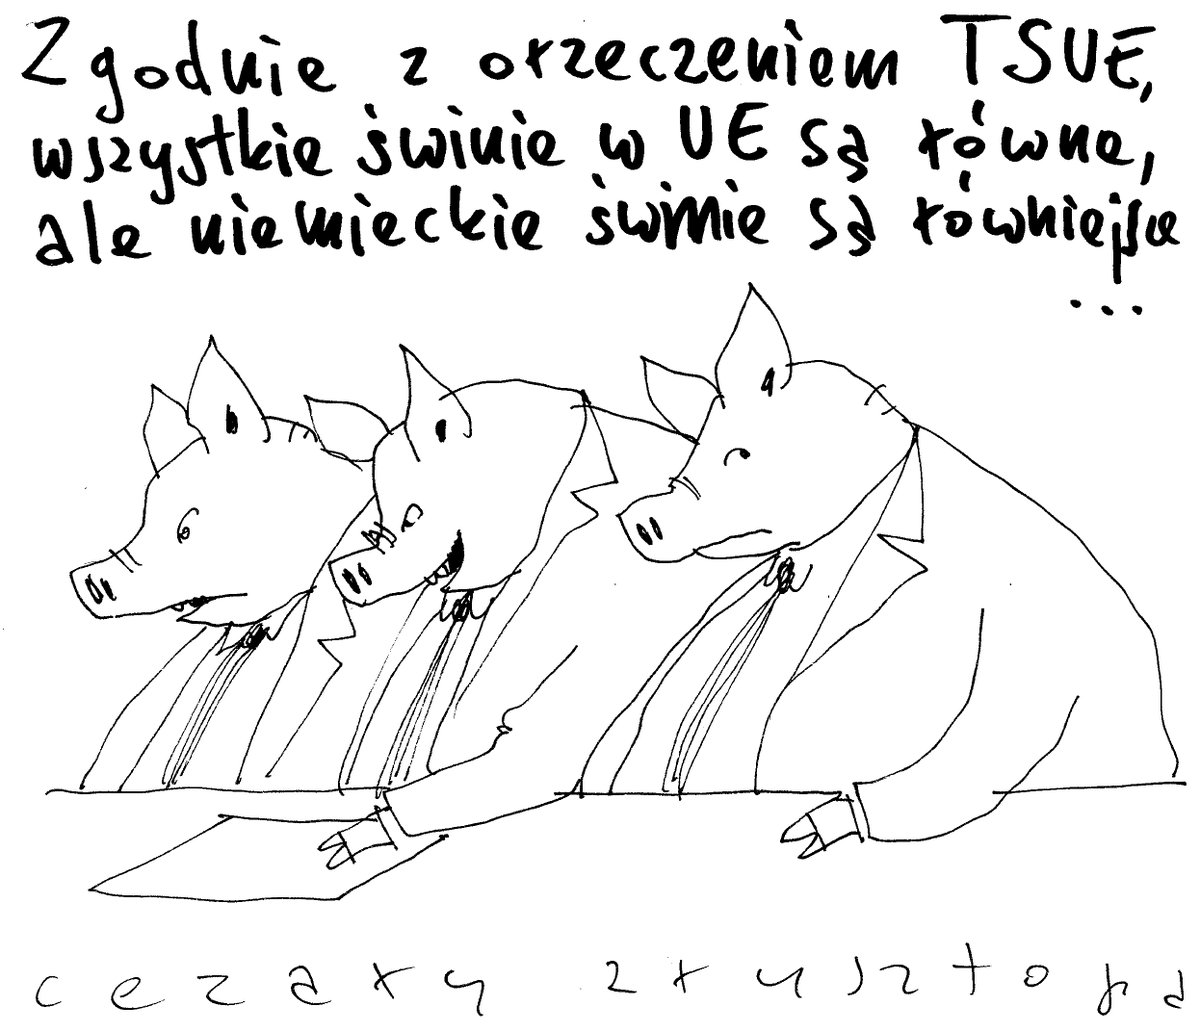 Zgodnie z orzeczeniem TSUE,
wszystkie świnie w UE są równe,
ale niemieckie świnie są równiejsze
...
cezary krysztopa